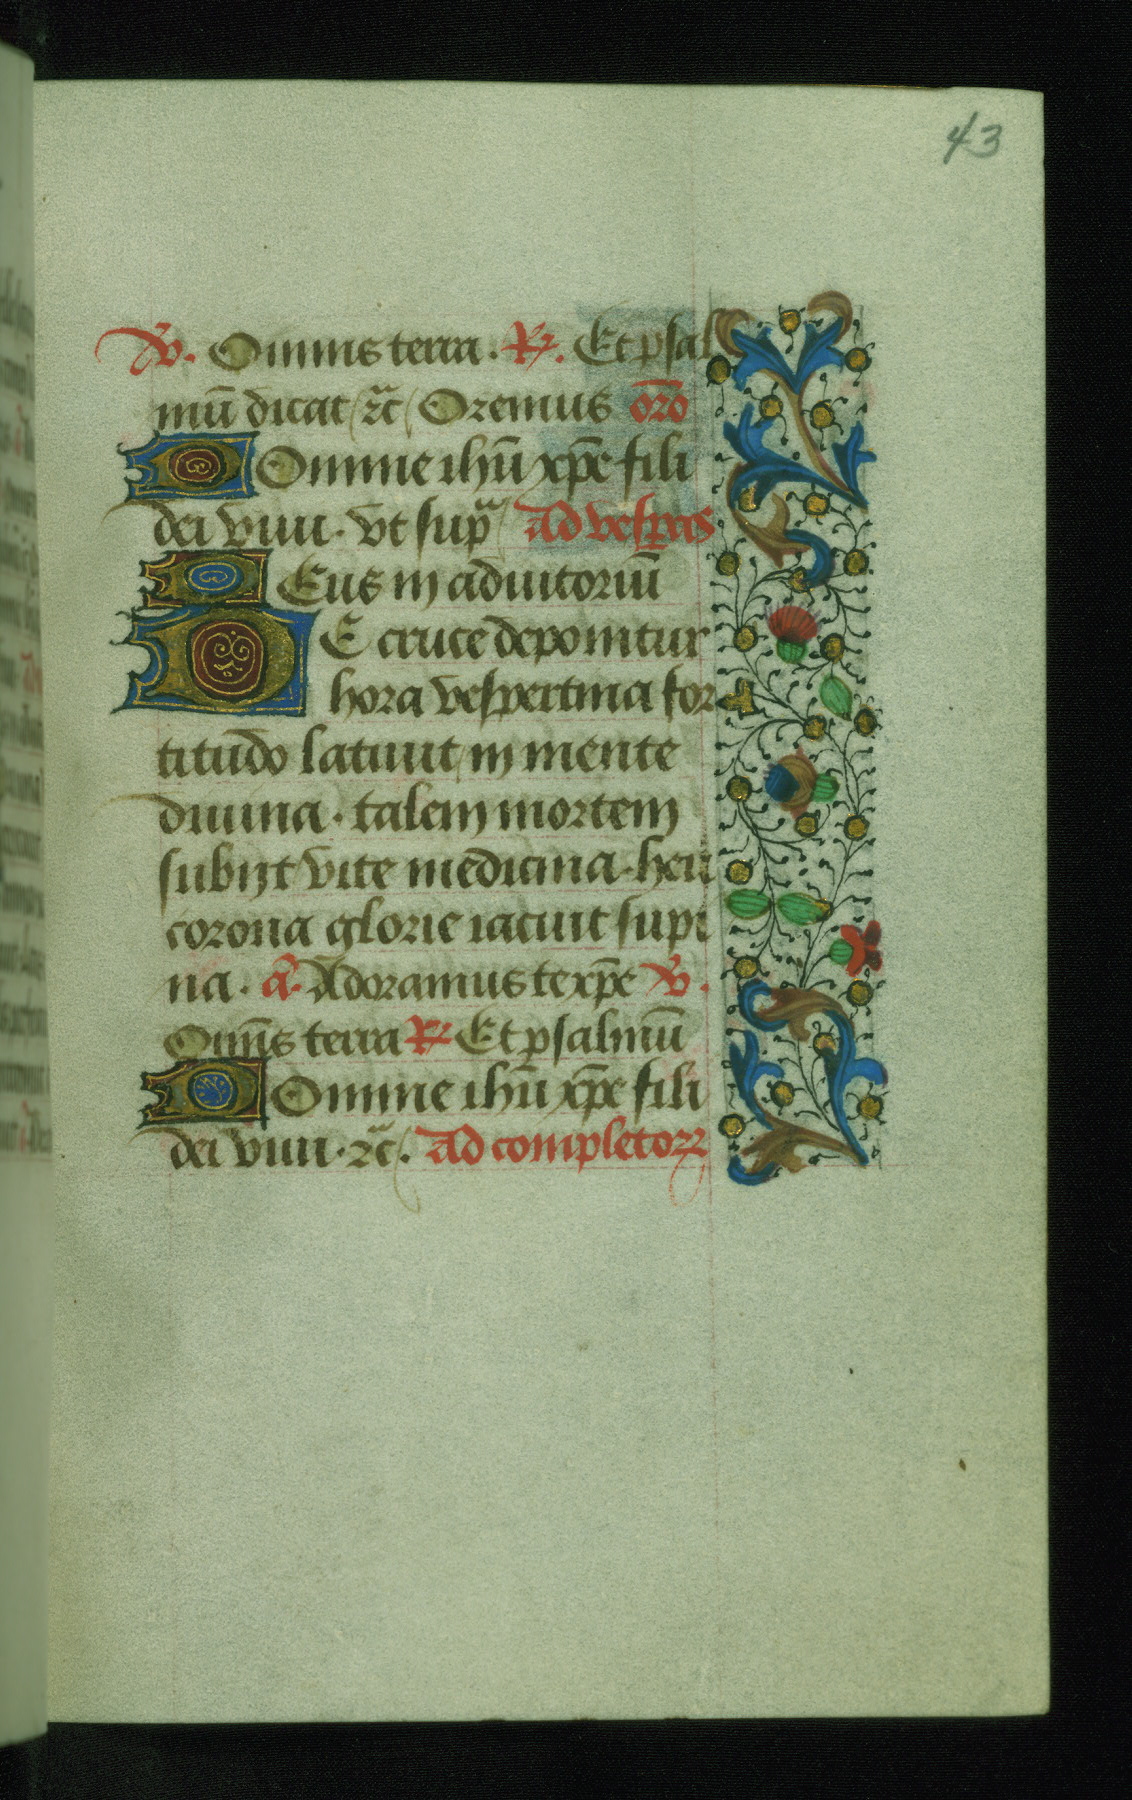 43
V. Om̄nis terra. R. Et psal
mū dicat ⁊c̄ Oremus oro
Domine ihū xp̄e fili
dei viui. vt sup̄ Ad vesp̄as
Deus in adiutoriū
De cruce deponitur
hora vespertina for
titudo latuit in mente
diuina. talem mortem
subijt vite medicina. heu
corona glorie iacuit supi
na. a. Adoramus te xp̄e V.
Om̄is terra R Et psalmū
Domine ihū xp̄e fili
dei viui. ⁊c̄. Ad completorꝝ